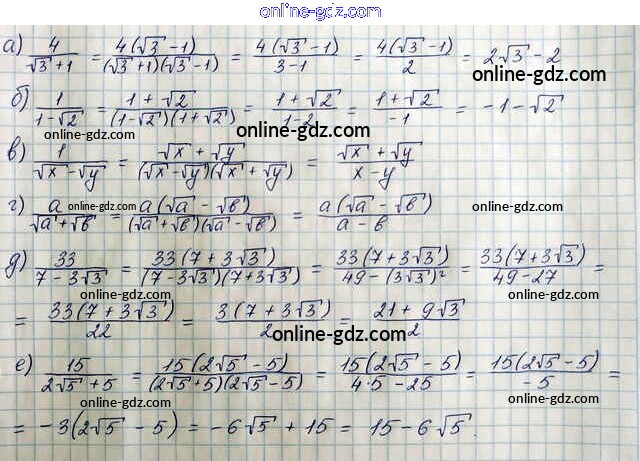 online-gdz.com
а) 4/(√3+1) = 4(√3-1)/((√3+1)(√3-1)) = 4(√3-1)/(3-1) = 4(√3-1)/2 = 2√3-2
online-gdz.com
б) 1/(1-√2) = (1+√2)/((1-√2)(1+√2)) = (1+√2)/(1-2) = (1+√2)/(-1) = -1-√2
online-gdz.com online-gdz.com online-gdz.com
в) 1/(√x-√y) = (√x+√y)/((√x-√y)(√x+√y)) = (√x+√y)/(x-y)
online-gdz.com
г) a/(√a+√b) = a(√a-√b)/((√a+√b)(√a-√b)) = a(√a-√b)/(a-b)
online-gdz.com online-gdz.com
д) 33/(7-3√3) = 33(7+3√3)/((7-3√3)(7+3√3)) = 33(7+3√3)/(49-(3√3)²) = 33(7+3√3)/(49-27) =
online-gdz.com online-gdz.com
= 33(7+3√3)/22 = 3(7+3√3)/2 = (21+9√3)/2
online-gdz.com
е) 15/(2√5+5) = 15(2√5-5)/((2√5+5)(2√5-5)) = 15(2√5-5)/(4·5-25) = 15(2√5-5)/(-5) =
online-gdz.com online-gdz.com
= -3(2√5-5) = -6√5+15 = 15-6√5.